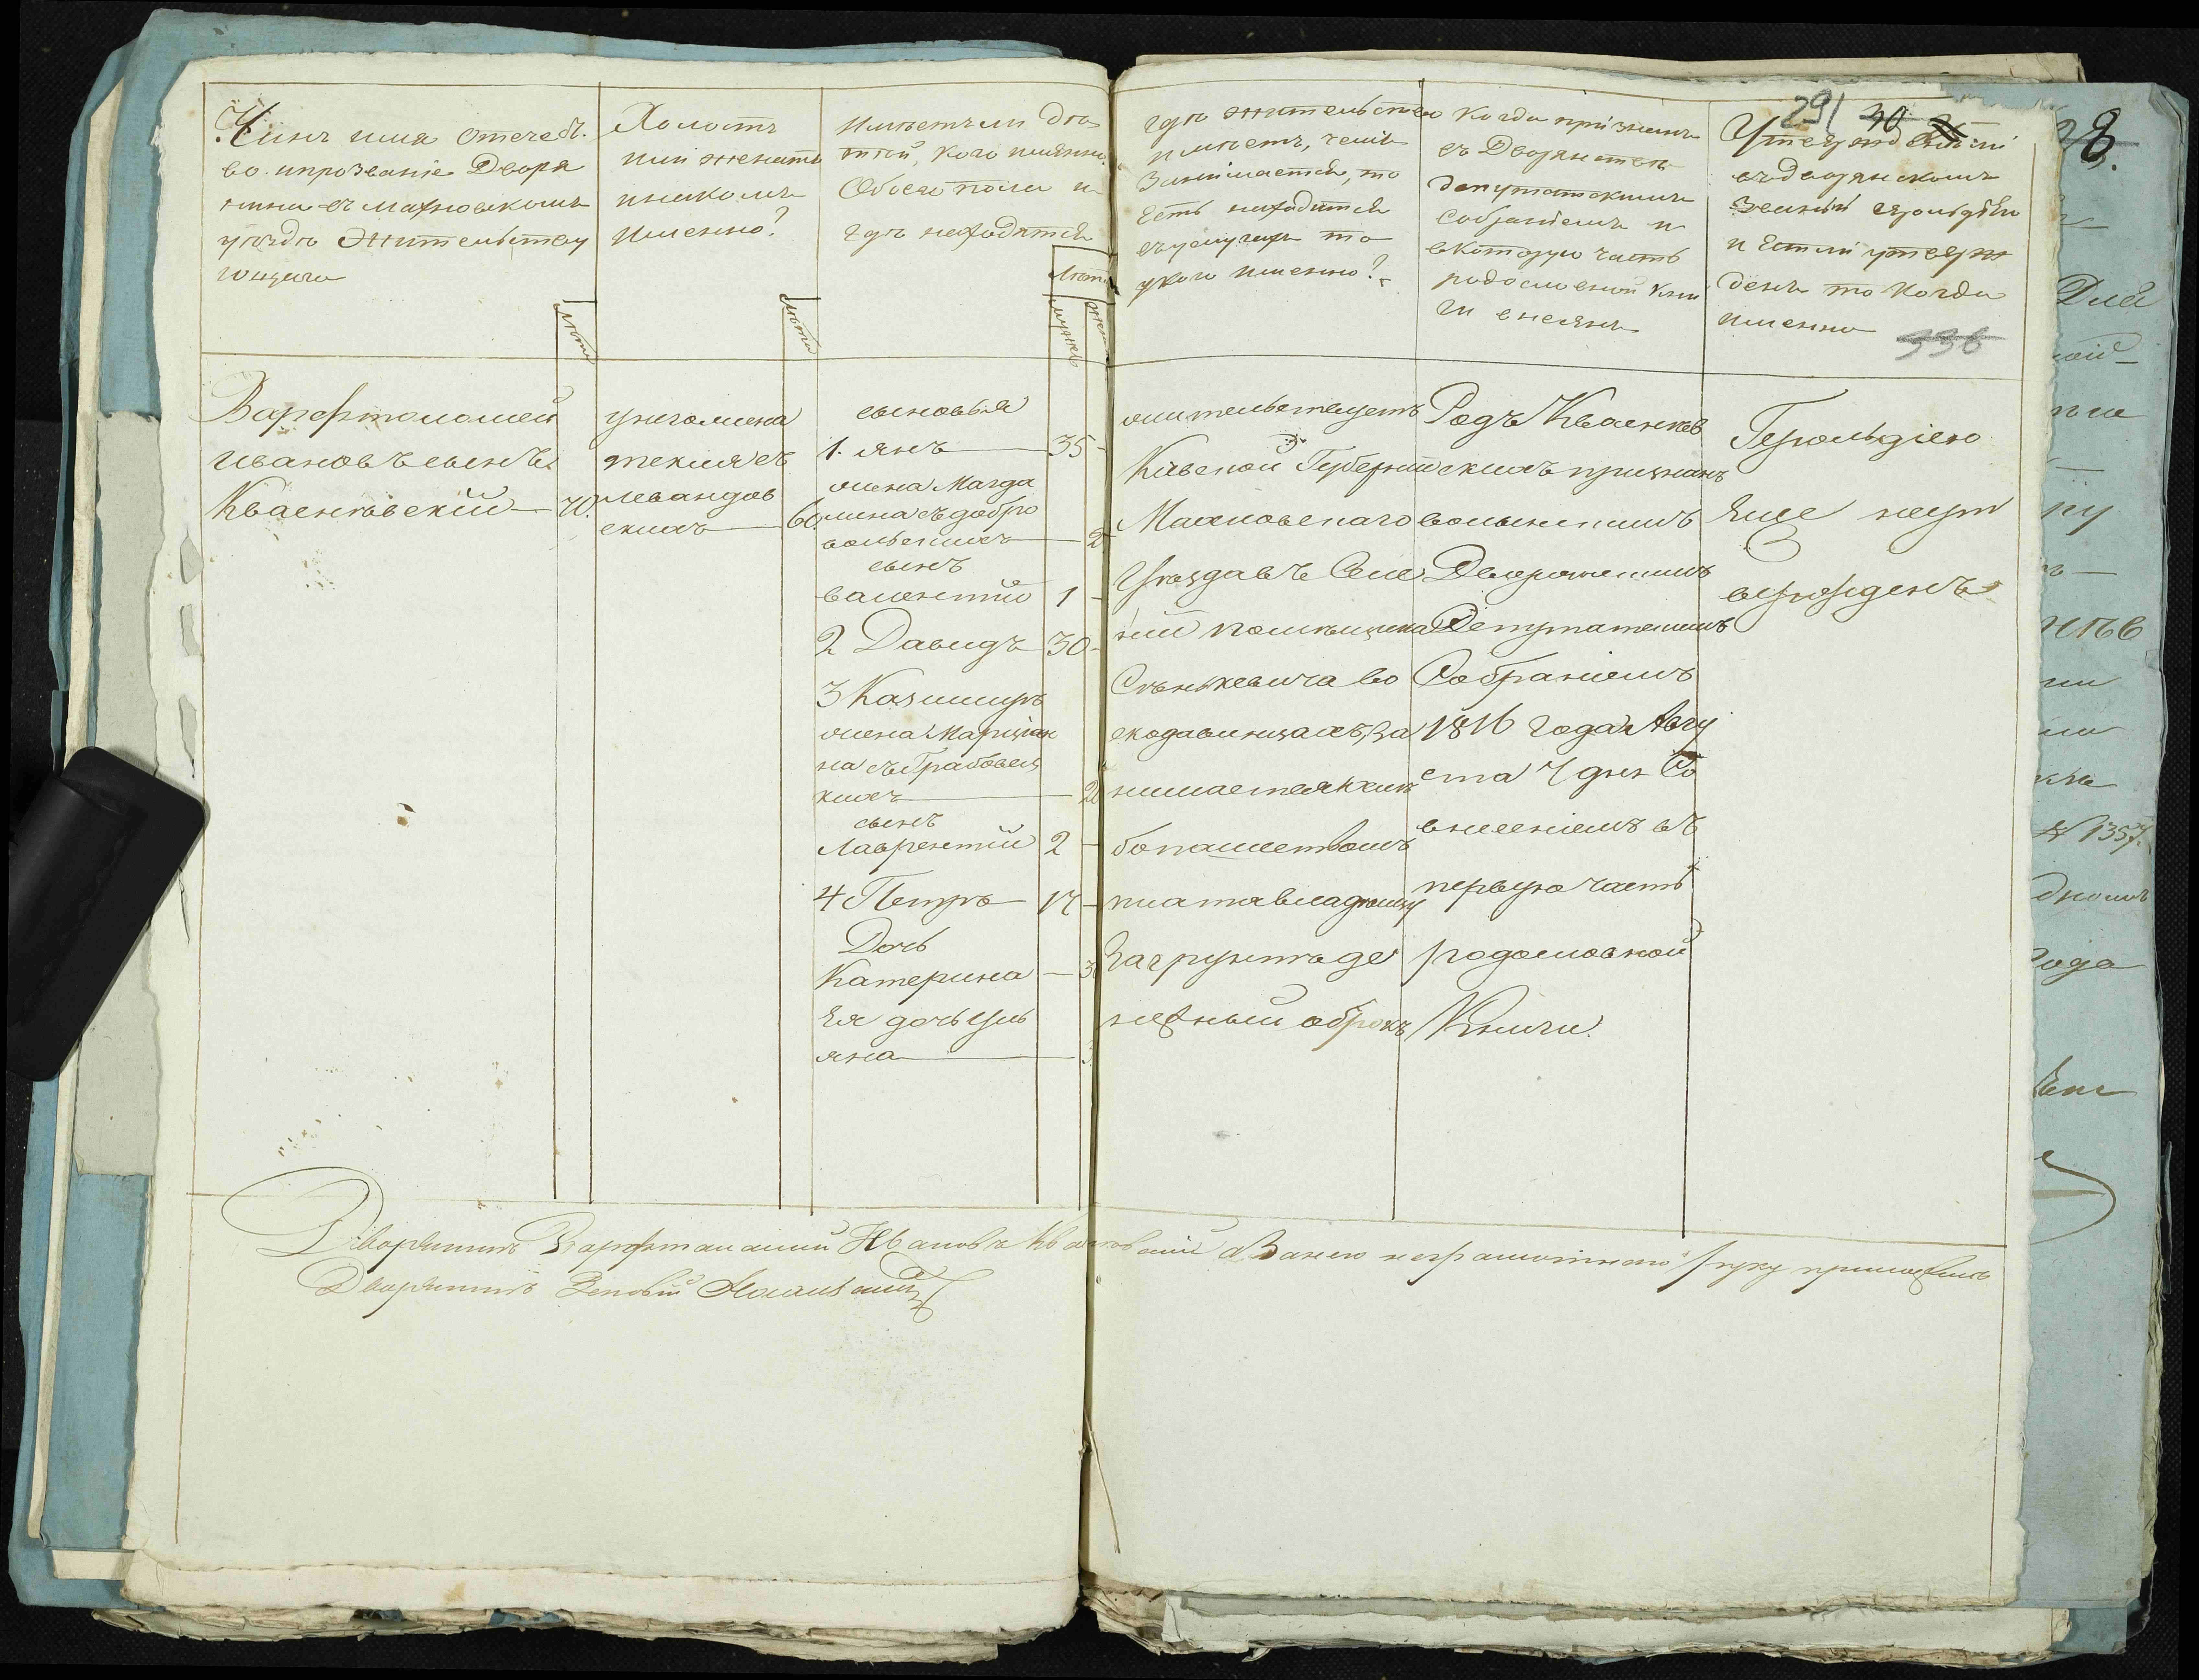 Чинъ имя отечест.
во. ипрозваніе Дворя
нина въ махновскомъ
уѣздѣ Жительству
ющаго
Лѣта
Холостъ
или женатъ
инакомъ
Именно?
Лѣта
Имѣетъ ли дѣ
тей, кого имянно
Обоего пола и
гдѣ находятся
Лѣта
мужеск
женск
гдѣ жительство
имѣетъ, чемъ
Занимается, то
Есть находится
въуслугахъ то
укого именно?
Когда признанъ
въ Дворянствѣ
депутатскимъ
Собраніемъ и
вкоторую часть
родословной Кни
ги внесенъ
291 30
Утвержденъ ли
въдворянскомъ
званіи герольдіею
и Естли утверж
денъ то когда
именно
336
Варфтоломей
ивановъ сынъ
Квасневскій 70.
унего жена
текля съ
левандов
скихъ 60
сыновья
1. янъ 35
жена Магда
лина съ добро
вольскихъ 2
сынъ
валентій 1
2 Давидъ 30
3 Казимиръ
жена Марціян
на съ Грабовец
кихъ 2
сынъ
Лаврентій 2
4 Петръ 17
Дочь
Катерина 3
Ея дочь Уль
яна 3
жительствуетъ
Кіевской Губерніи
Махновскаго
Уѣзда въ Селе
ніи помѣщика
Станкевича Во
скодавинцахъ, за
нимается хлѣ
бопашествомъ
платя владельцу
За грунта де
нежный оброкъ
Родъ Кваснев
скихъ признанъ
волынскимъ
Дворянскимъ
Депутатскимъ
Собраніемъ
1816 года Авгу
ста 4 дня Со
внесеніемъ въ
первую часть
родословной
Книги.
Герольдіею
Еще неут
вержденъ
Дворянинъ Варфтоломій Ивановъ Квасневскій аЗанего неграмотнаго руку приложилъ
Дворянинъ
8.
Для
№ 1357.
года